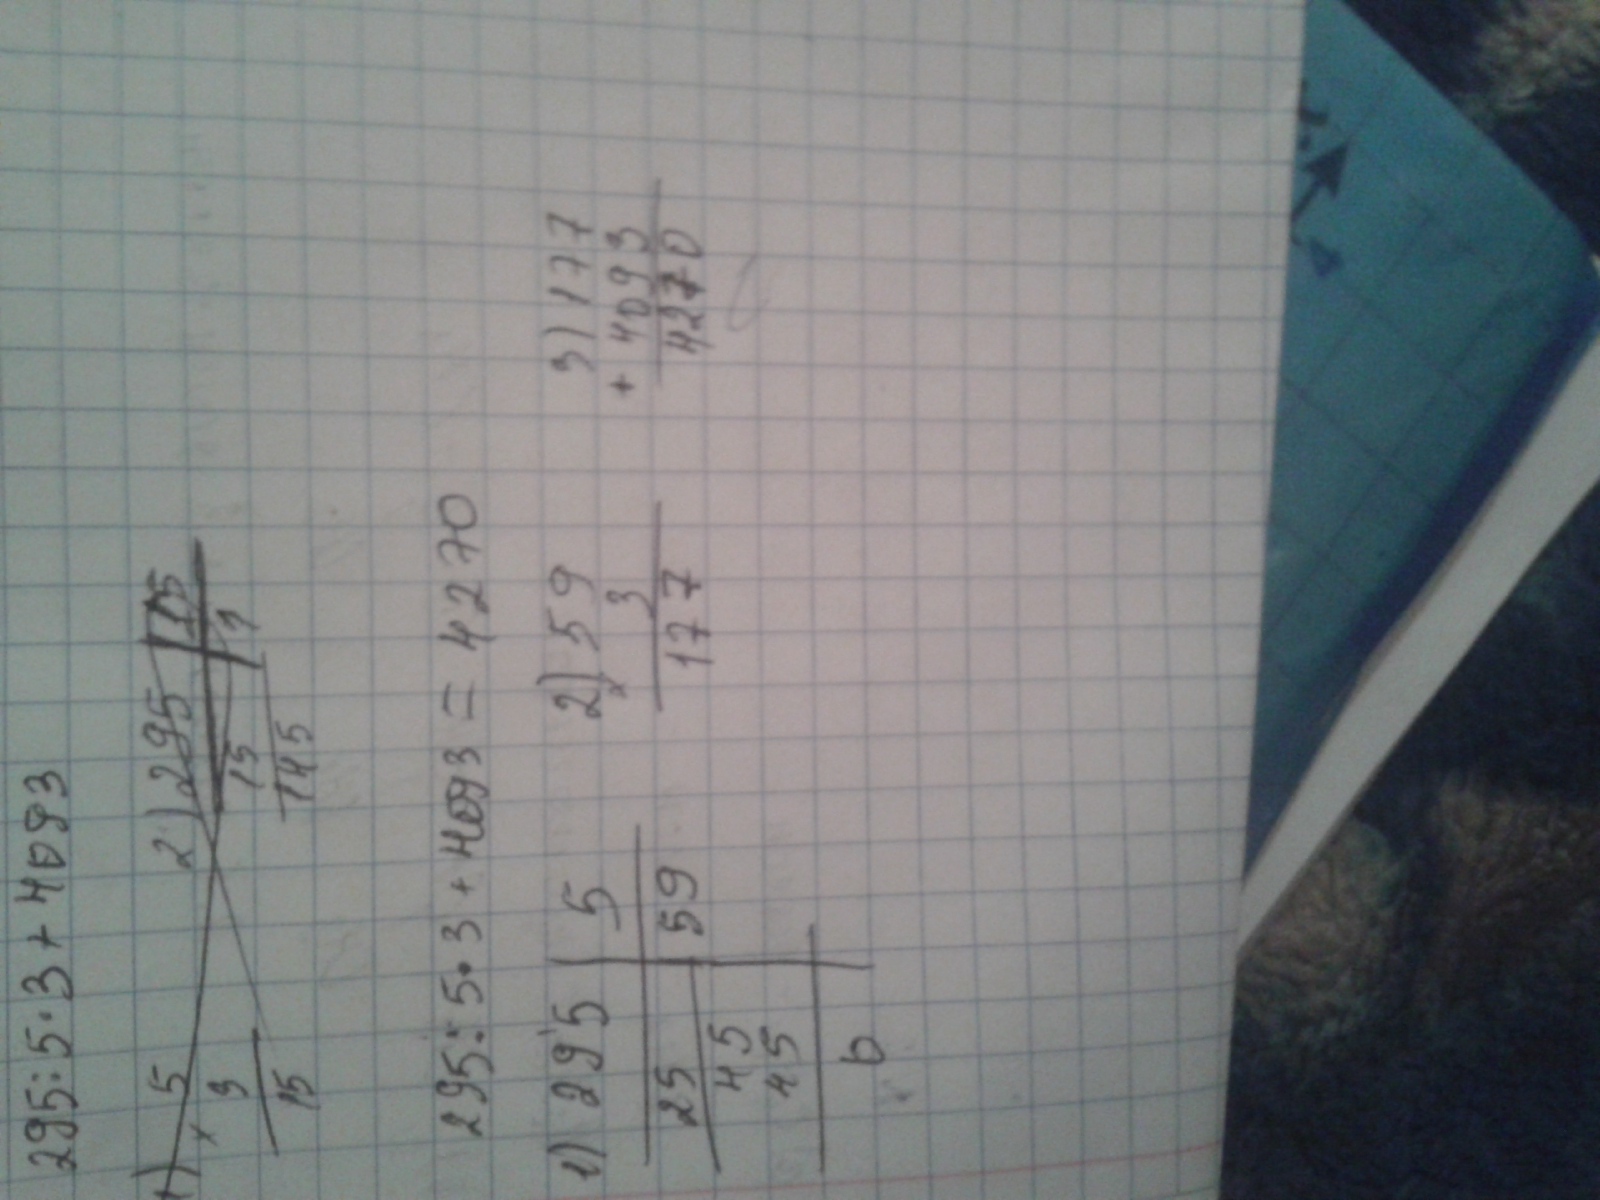 295:5·3+4093
1) 5 2) 295 | 15
× 3 15 1
15 145
295:5·3+4093 = 4270
1) 295 | 5 2) 59 3) 177
25 59 × 3 + 4093
45 177 4270
45
0